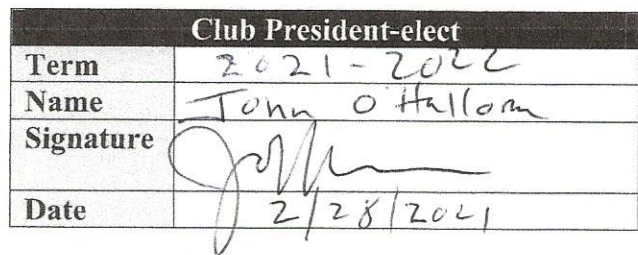 Club President-elect
Term 2021-2022
Name John O'Halloran
Signature
Date 2/28/2021